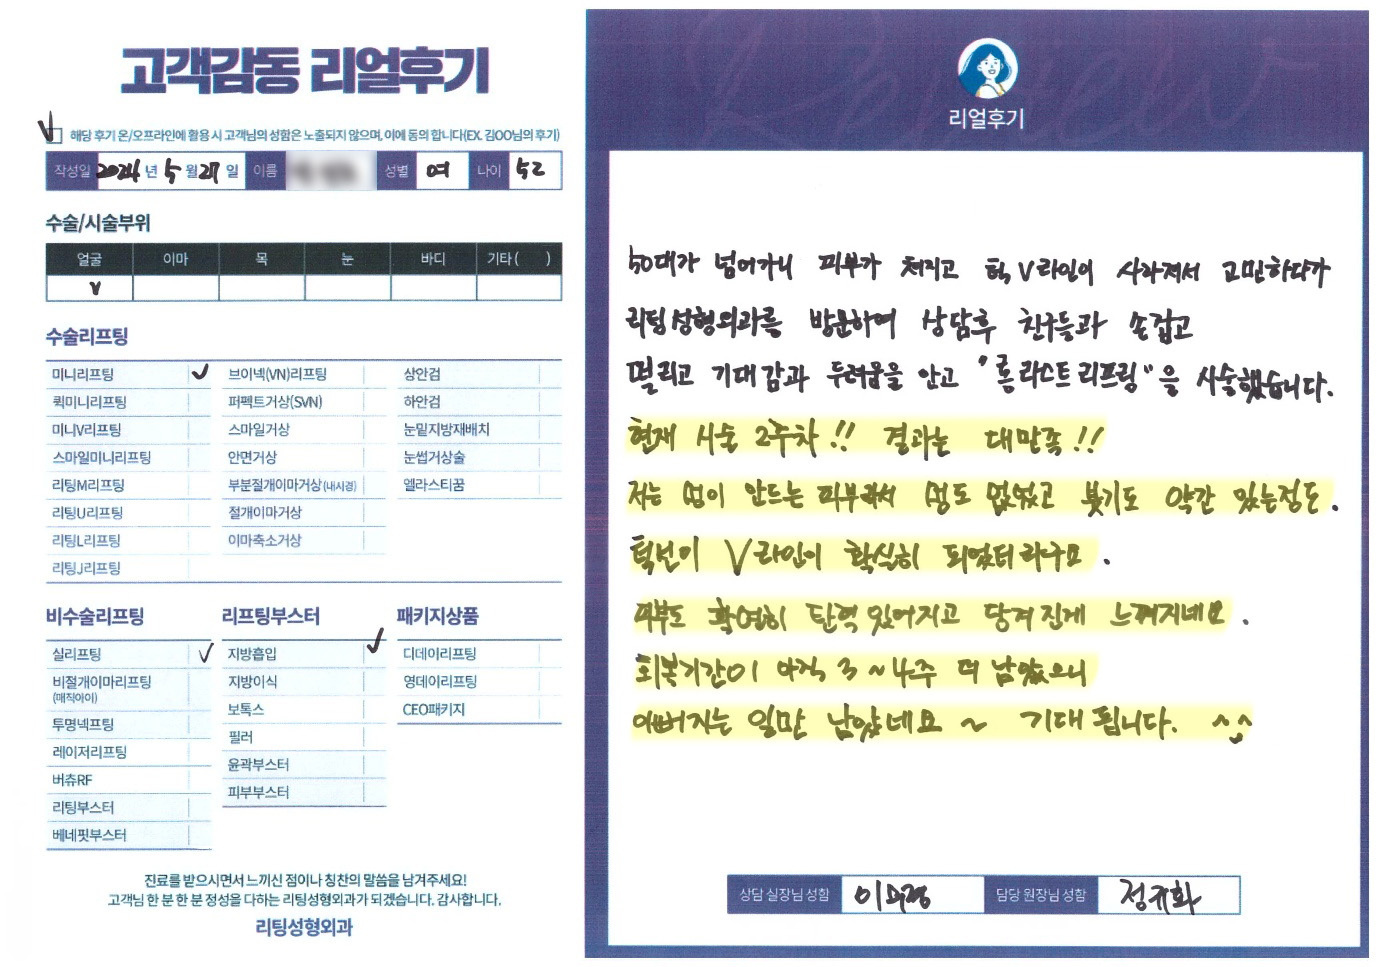 고객감동 리얼후기
해당 후기 온/오프라인에 활용 시 고객님의 성함은 노출되지 않으며, 이에 동의 합니다(EX. 김OO님의 후기)
작성일 2024 년 5 월 27 일 이름 성별 여 나이 52
수술/시술부위
얼굴 이마 목 눈 바디 기타 ( )
v
수술리프팅
미니리프팅 브이넥(VN)리프팅 상안검
퀵미니리프팅 퍼펙트거상(SVN) 하안검
미니V리프팅 스마일거상 눈밑지방재배치
스마일미니리프팅 안면거상 눈썹거상술
리팅M리프팅 부분절개이마거상 (내시경) 엘라스티꿈
리팅U리프팅 절개이마거상
리팅L리프팅 이마축소거상
리팅J리프팅
비수술리프팅 리프팅부스터 패키지상품
실리프팅 지방흡입 디데이리프팅
비절개이마리프팅 지방이식 영데이리프팅
(매직아이) 보톡스 CEO패키지
투명넥프팅 필러
레이저리프팅 윤곽부스터
버츄RF 피부부스터
리팅부스터
베네핏부스터
진료를 받으시면서 느끼신 점이나 칭찬의 말씀을 남겨주세요!
고객님 한 분 한 분 정성을 다하는 리팅성형외과가 되겠습니다. 감사합니다.
리팅성형외과
리얼후기
50대가 넘어가니 피부가 쳐지고 턱 V라인이 사라져서 고민하다가
리팅성형외과를 방문하여 상담후 친구들과 손잡고
떨리고 기대감과 두려움을 안고 "롱라스트 리프팅"을 시술했습니다.
현재 시술 2주차!! 결과는 대만족!!
저는 멍이 안드는 피부라서 멍도 없었고 붓기도 약간 있는정도.
턱선이 V라인이 확실히 되었더라구요.
피부도 확연히 탄력있어지고 당겨진게 느껴지네요.
회복기간이 아직 3~4주 더 남았으니
이뻐지는 일만 남았네요~ 기대됩니다. ^^
상담 실장님 성함 담당 원장님 성함 정규화